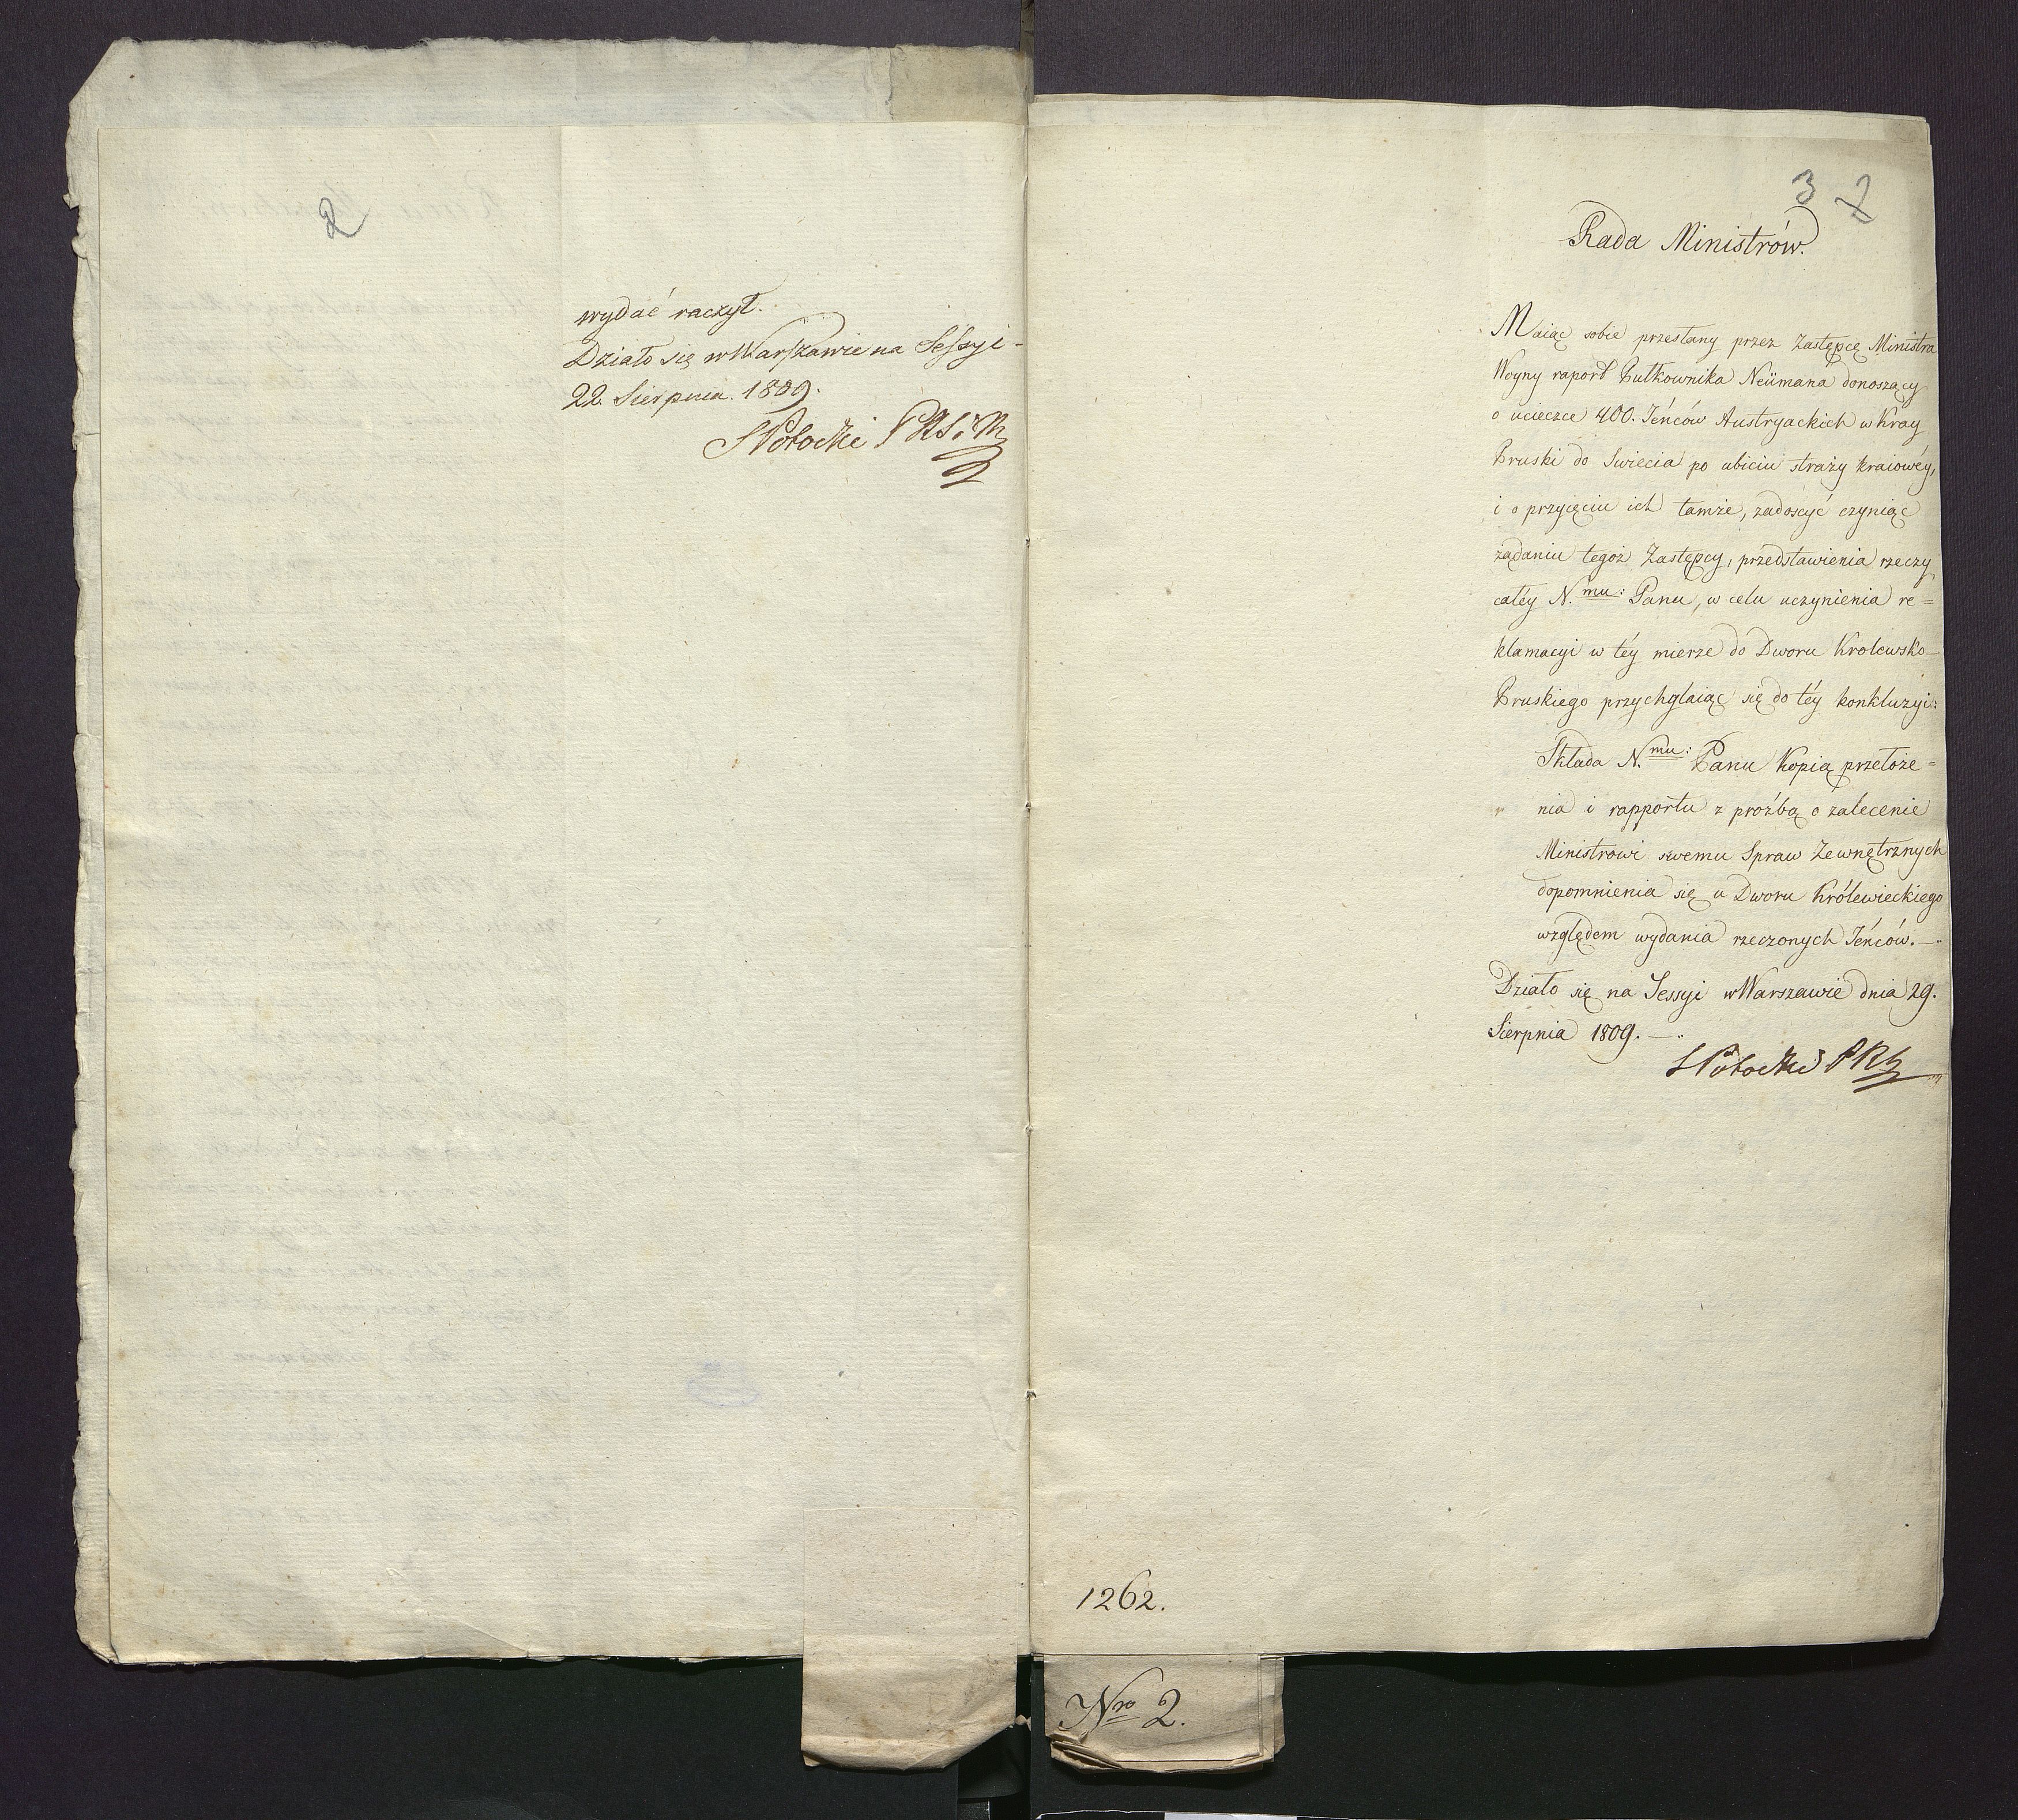 2
wydać raczył.
Działo się w Warszawie na Sessyi
22. Sierpnia. 1809.
SPotocki PRSiM
3 2
Rada Ministrów.
Maiąc sobie przesłany przez Zastępcę Ministra
Woyny raport Pułkownika Neümana donoszący
o ucieczce 400. Jeńców Austryackich w Kray
Pruski do Swiecia po ubiciu straży kraiowéy,
i o przyięciu ich tamże, zadosyć czyniąc
żądaniu tegoż Zastępcy, przedstawienia rzeczy
całéy N.mu: Panu, w celu uczynienia re=
klamacyi w téy mierze do Dworu Krolewsko-
Pruskiego przychylaiąc się do téy konkluzyi:
Składa N.mu: Panu Kopią przełoże=
nia i rapportu z proźbą o zalecenie
Ministrowi swemu Spraw Zewnętrznych
dopomnienia się u Dworu Królewieckiego
względem wydania rzeczonych Jeńców.—
Działo się na Sessyi w Warszawie dnia 29.
Sierpnia 1809.—
SPotocki PR
1262.
Nro 2.